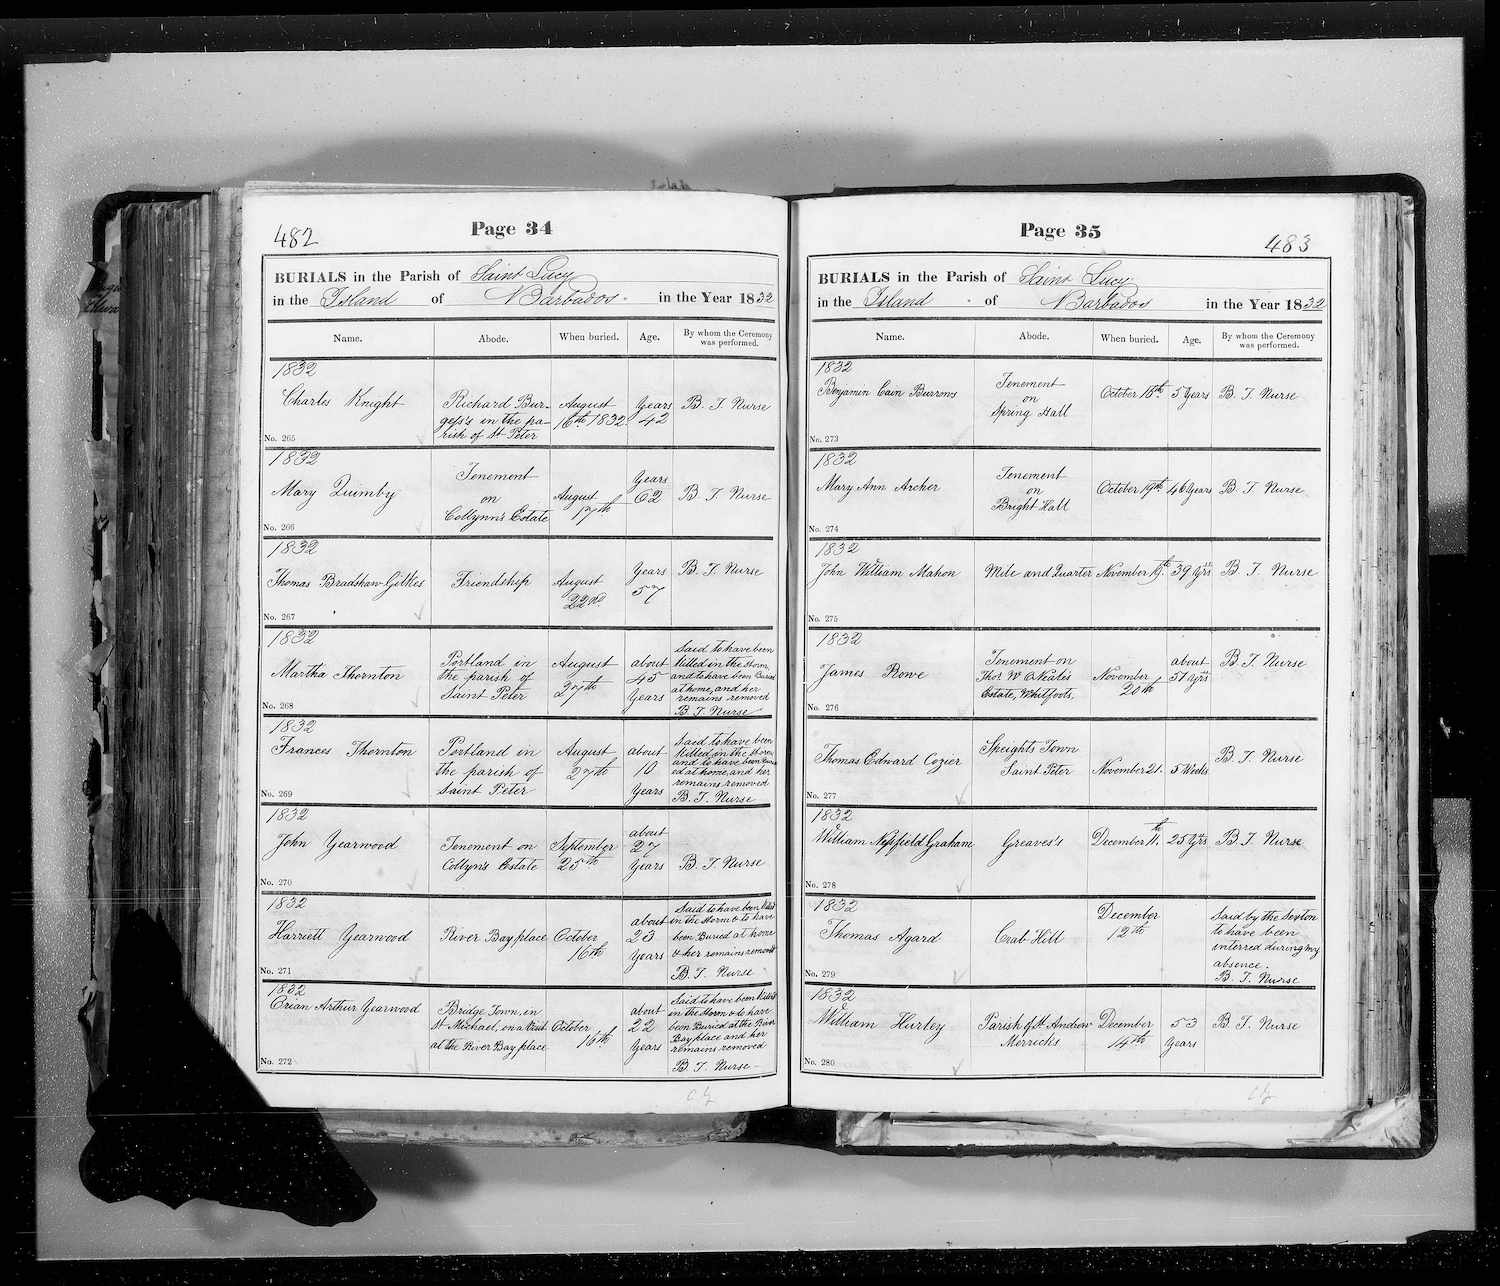 482
Page 34
BURIALS in the Parish of Saint Lucy
in the Island of Barbados. in the Year 1832
Name. Abode. When buried. Age. By whom the Ceremony was performed.
1832
Charles Knight
Richard Bur-
gess's in the pa-
rish of St Peter
August
16th 1832
Years
42
B. T. Nurse
No. 265
1832
Mary Quimby
Tenement
on
Collynn's Estate
August
17th
Years
62
B. T. Nurse
No. 266
1832
Thomas Bradshaw Gilkes
Friendship
August
22nd
Years
57
B. T. Nurse
No. 267
1832
Martha Thornton
Portland in
the parish of
Saint Peter
August
27th
about
45
Years
Said to have been
killed in the storm,
and to have been Buried
at home, and her
remains removed
B. T. Nurse
No. 268
1832
Frances Thornton
Portland in
the parish of
Saint Peter
August
27th
about
10
Years
Said to have been
killed in the storm,
and to have been Buri-
ed at home, and her
remains removed
B. T. Nurse
No. 269
1832
John Yearwood
Tenement on
Collyn's Estate
September
25th
about
27
Years
B. T. Nurse
No. 270
1832
Harriett Yearwood
River Bay place
October
16th
about
23
Years
Said to have been killed
in the storm & to have
been Buried at home
& her remains removed
B. T. Nurse
No. 271
1832
Brian Arthur Yearwood
Bridge Town, in
St Michael, on a Visit
at the River Bay place
October
16th
about
22
Years
Said to have been killed
in the storm & to have
been Buried at the River
Bay place and her
remains removed
B. T. Nurse
No. 272
Page 35
483
BURIALS in the Parish of Saint Lucy
in the Island of Barbados in the Year 1832
Name. Abode. When buried. Age. By whom the Ceremony was performed.
1832
Benjamin Cain Burrows
Tenement
on
Spring Hall
October 18th
5 Years
B. T. Nurse
No. 273
1832
Mary Ann Archer
Tenement
on
Bright Hall
October 19th
46 Years
B. T. Nurse
No. 274
1832
John William Mahon
Mile and Quarter
November
39 Yrs
B. T. Nurse
No. 275
1832
James Rowe
Tenement on
Thos. W. ONeale's
Estate, Whitfoots,
November
20th
about
51 Yrs
B. T. Nurse
No. 276
Thomas Edward Cozier
Speights Town
Saint Peter
November 21.
5 Weeks
B. T. Nurse
No. 277
1832
William Neffield Graham
Greaves's
December 11th
25 Yrs
B. T. Nurse
No. 278
1832
Thomas Agard
Crab Hill
December
12th
Said by the Sexton
to have been
interred during my
absence.
B. T. Nurse
No. 279
1832
William Hurley
Parish of St Andrew
Merricks
December
14th
53
Years
B. T. Nurse
No. 280